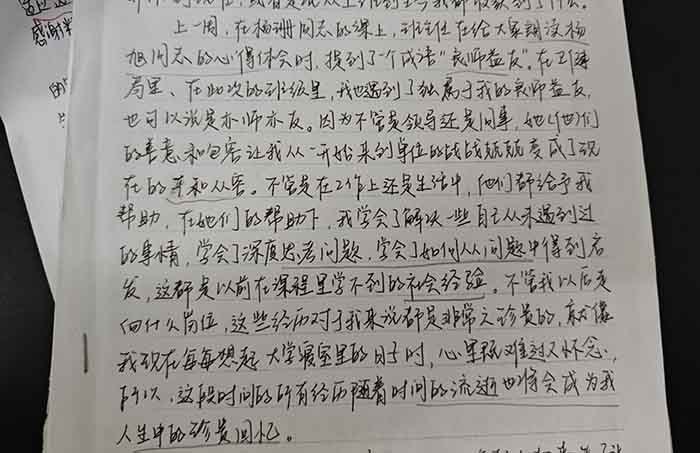 感谢
上一周，在杨珊同志的课上，班主任在给大家朗读杨
旭同志的心得体会时，提到了一个成语“良师益友”。在卫健
局里、在此次的班级里，我也遇到了独属于我的良师益友，
也可以说是亦师亦友。因为不管是领导还是同事，她(他)们
的善意和包容让我从一开始来到单位的战战兢兢变成了现
在的平和从容。不管是在工作上还是生活中，他们都给予我
帮助，在她们的帮助下，我学会了解决一些自己从未遇到过
的事情，学会了深度思考问题，学会了如何从问题中得到启
发，这都是以前在课程里学不到的社会经验。不管我以后走
向什么岗位，这些经历对于我来说都是非常之珍贵的，就像
我现在每每想起大学寝室里的日子时，心里既难过又怀念，
所以，这段时间的所有经历随着时间的流逝也将会成为我
人生中的珍贵回忆。